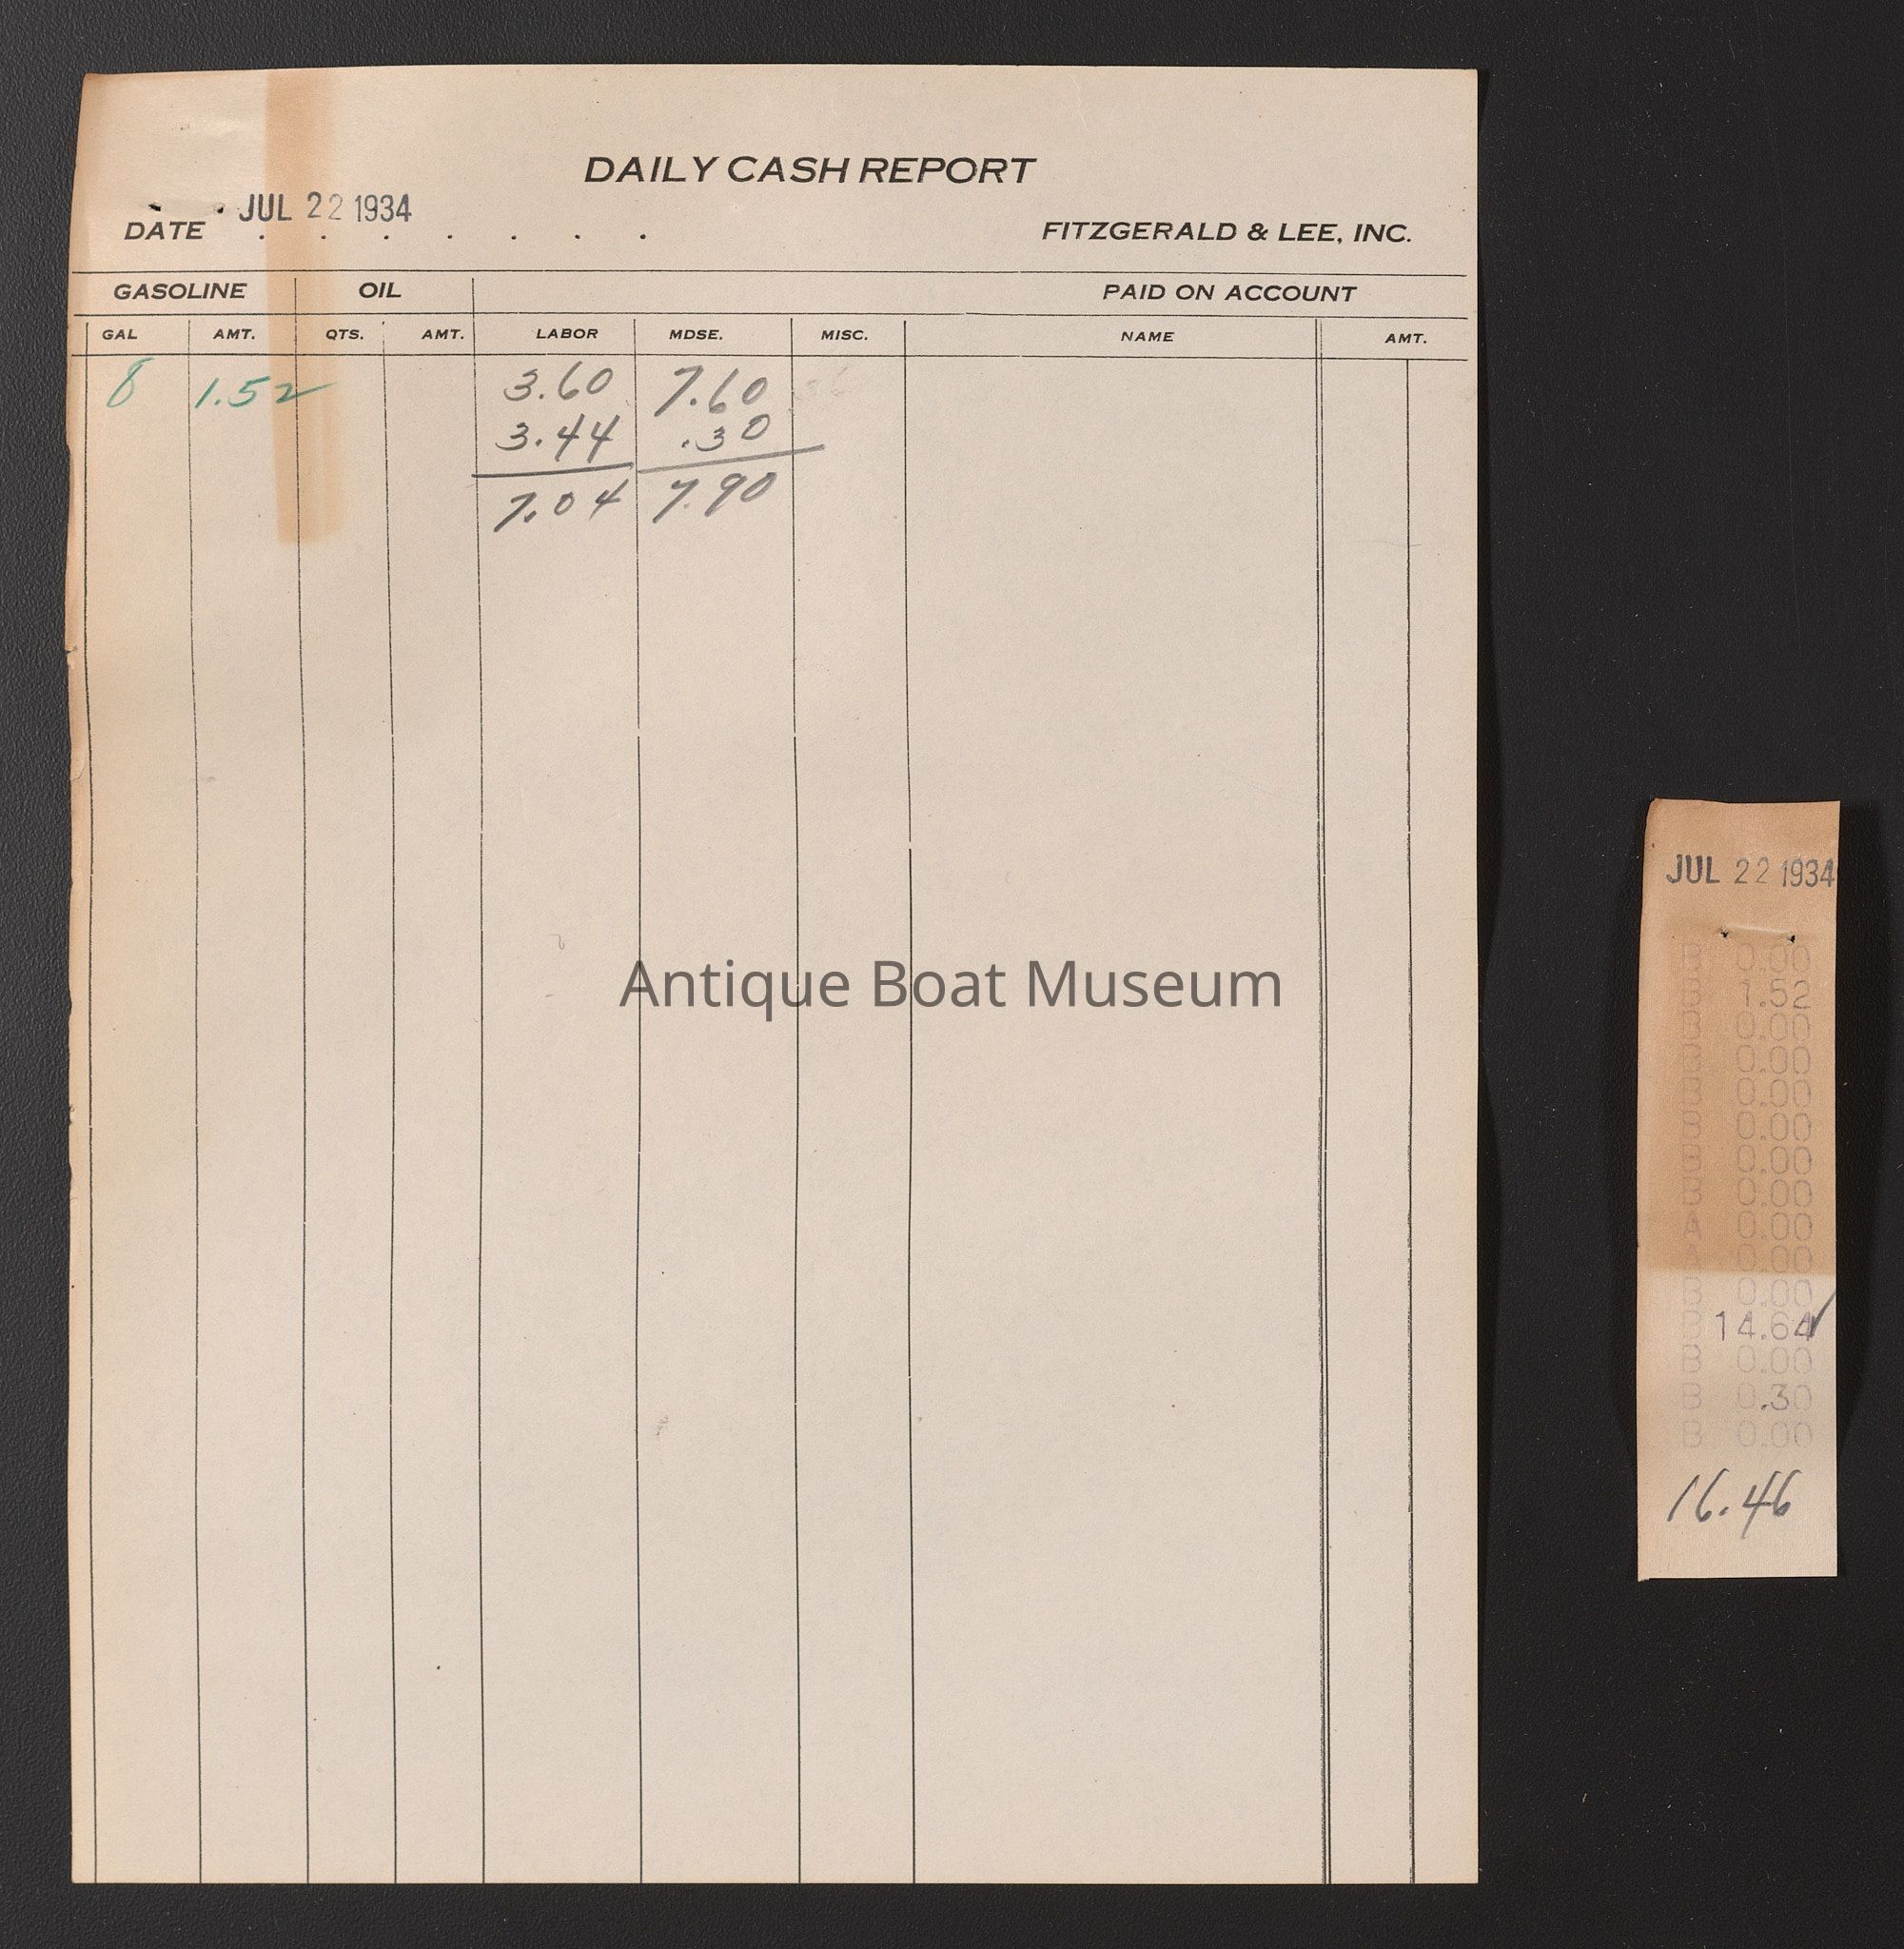 DAILY CASH REPORT
JUL 22 1934
DATE . . . . . . . FITZGERALD & LEE, INC.
GASOLINE OIL PAID ON ACCOUNT
GAL AMT. QTS. AMT. LABOR MDSE. MISC. NAME AMT.
8 1.52 3.60 7.60
3.44 .30
7.04 7.90
Antique Boat Museum
JUL 22 1934
B 0.00
B 1.52
B 0.00
B 0.00
B 0.00
B 0.00
B 0.00
B 0.00
A 0.00
A 0.00
B 0.00
B 14.64
B 0.00
B 0.30
B 0.00
16.46